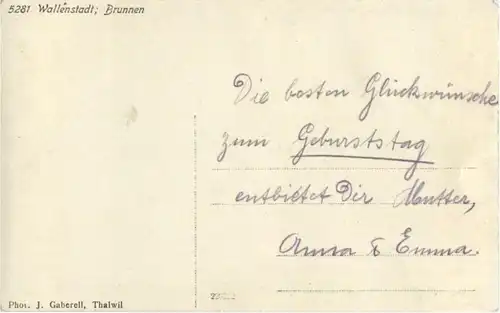 5281 Wallenstadt; Brunnen
Die besten Glückwünsche
zum Geburtstag
entbietet Dir Mutter,
Anna & Emma.
Phot. J. Gaberell, Thalwil